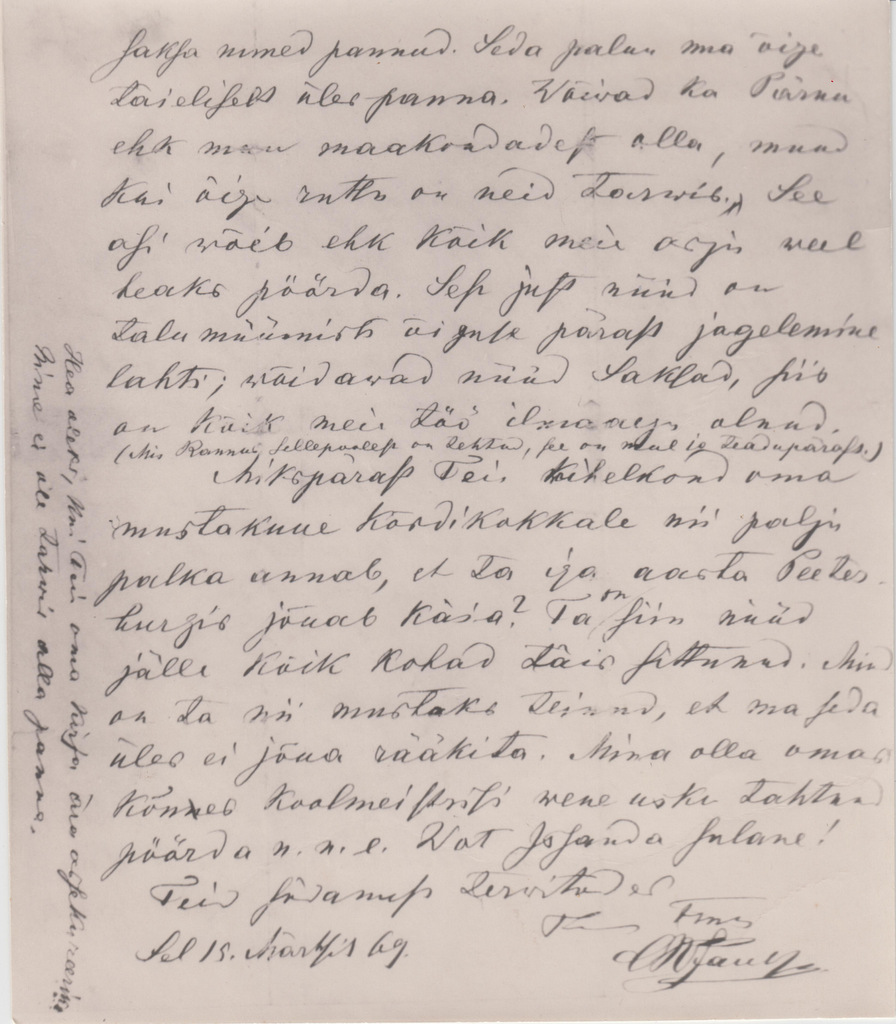 saksa nimed pannud. Seda palun ma õige
täieliselt üles panna. Wõiwad ka Pärnu
ehk muu maakondadest olla, muud
kui õige ruttu on neid tarwis. See
asi wõib ehk kõik meie asju weel
heaks pöörda. Sest just nüüd on
talumüümiste õiguse pärast jagelemine
lahti; wõidawad nüüd Saksad, siis
on kõik meie töö ilmaaegu olnud.
(Mis Rannus sellepoolest on tehtud, see on mul ju teadupärast.)
Mikspärast Teie kihelkond oma
mustakuue kördikokkale nii palju
palka annab, et ta iga aasta Peeter-
burgis jõuab käia? Ta on siin nüüd
jälle kõik kohad täis sittunud. Mind
on ta nii mustaks teinud, et ma seda
üles ei jõua rääkida. Mina olla omas
kõnnes koolmeistrisi wene usku tahtnud
pöörda n. n. e. Wot Jssanda sulane!
Teid südamest terwitades
Sel 15. Märtsil 69.
Hea oleks, kui Teie oma kirja ära
nime ei ole tarwis alla panna.